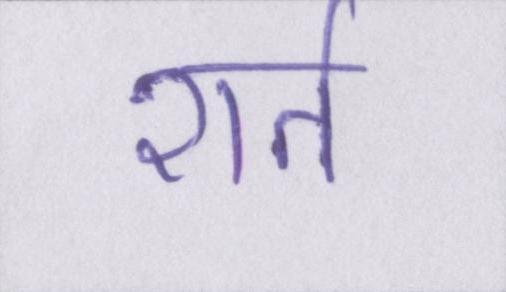 शर्त